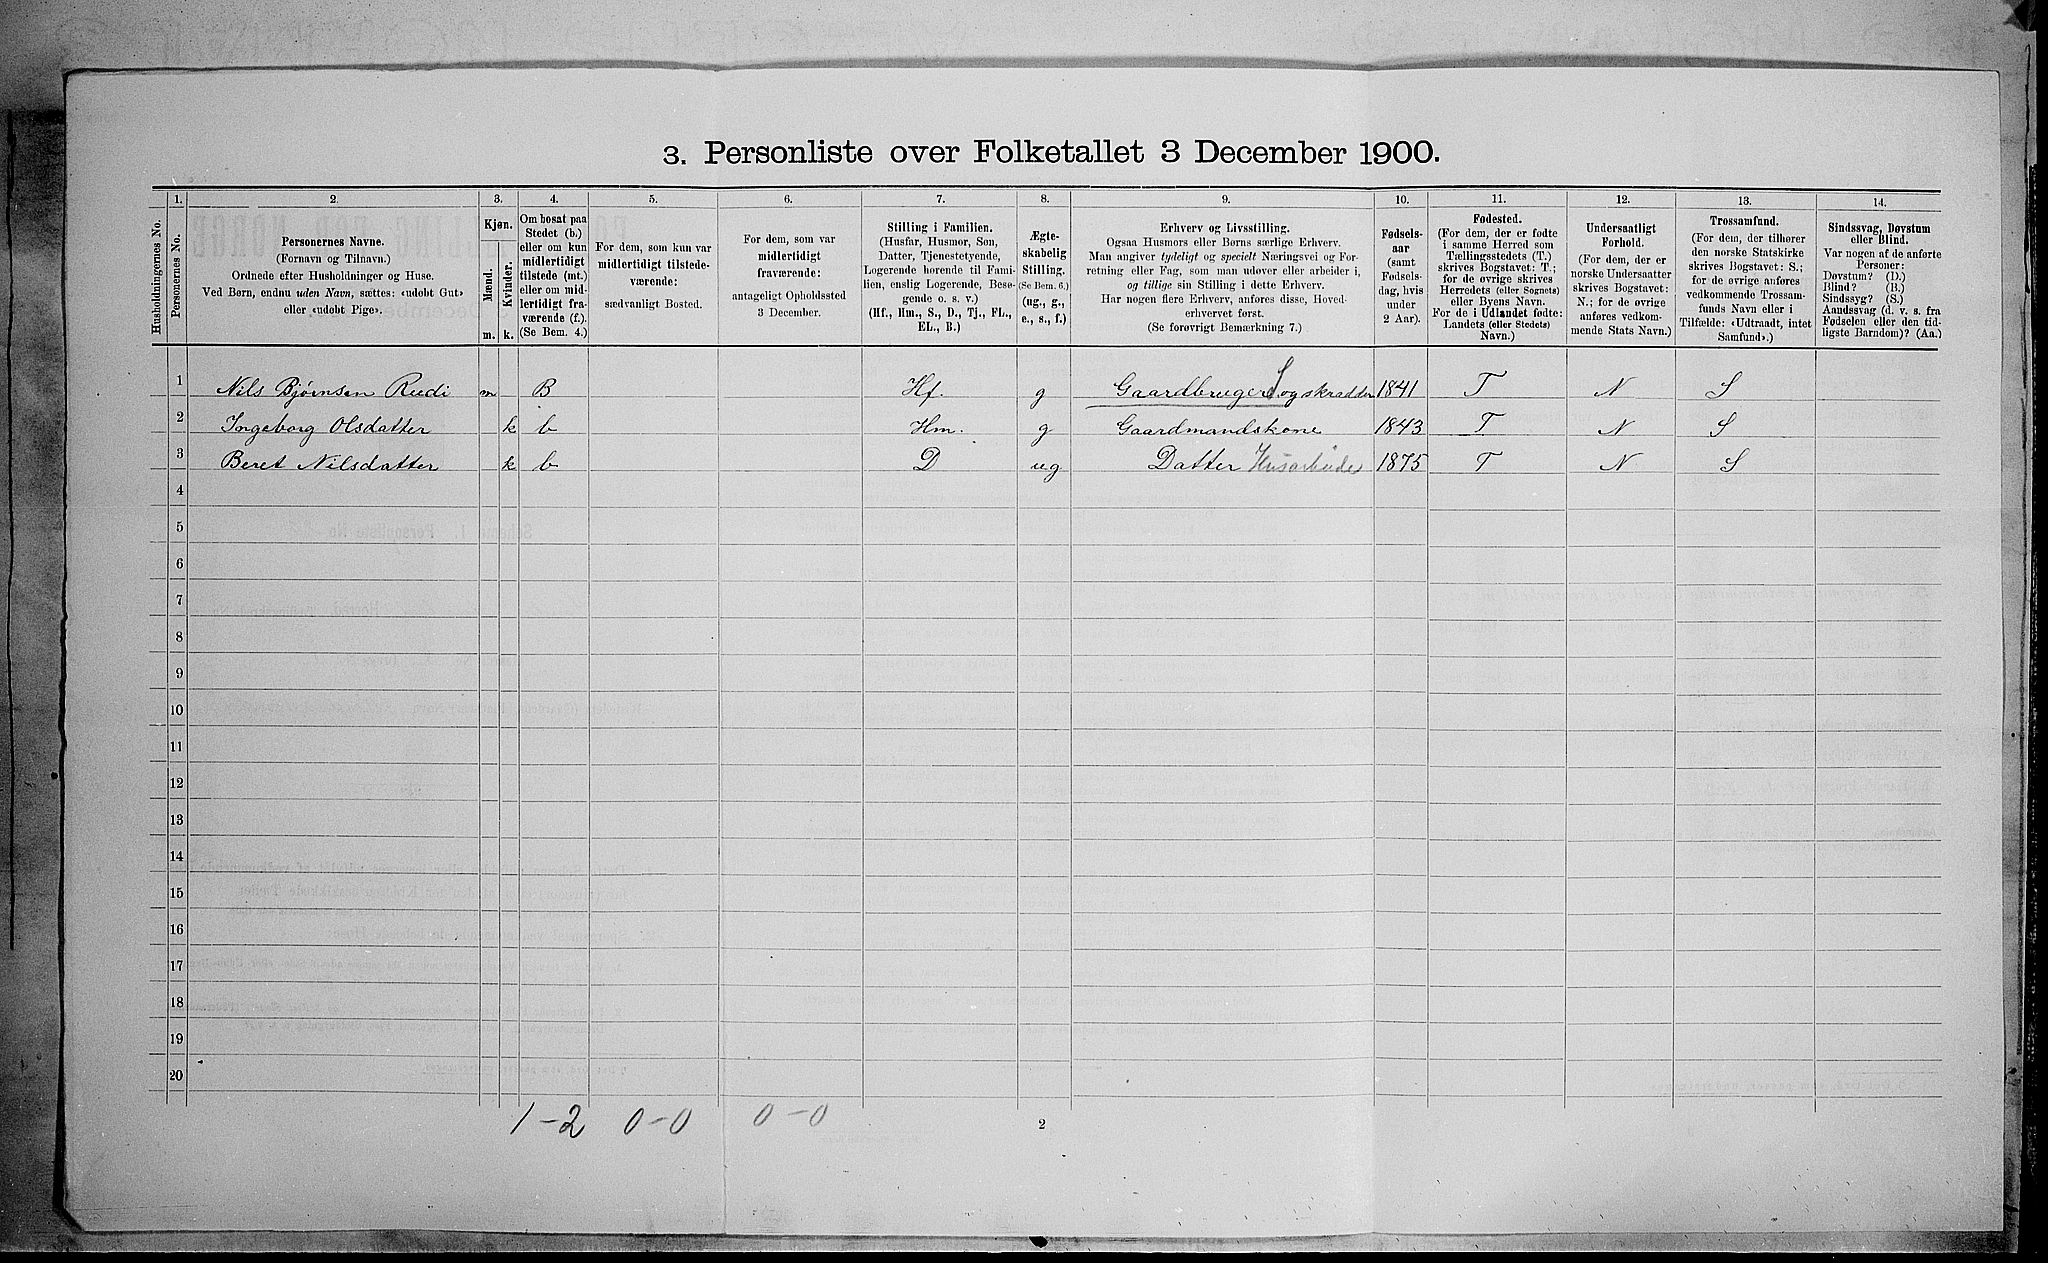 3. Personliste over Folketallet 3 December 1900.
Husholdningernes No.
1.
Personernes No.
2.
Personernes Navne.
(Fornavn og Tilnavn.)
Ordnede efter Husholdninger og Huse.
Ved Børn, endnu uden Navn, sættes: «udøbt Gut»
eller «udøbt Pige».
3.
Kjøn.
Mænd.
Kvinder.
m. k.
4.
Om bosat paa
Stedet (b.)
eller om kun
midlertidigt
tilstede (mt.)
eller om mid-
lertidigt fra-
værende (f.).
(Se Bem. 4.)
5.
For dem, som kun var
midlertidigt tilstede-
værende:
sædvanligt Bosted.
6.
For dem, som var
midlertidigt
fraværende:
antageligt Opholdssted
3 December.
7.
Stilling i Familien.
(Husfar, Husmor, Søn,
Datter, Tjenestetyende,
Logerende hørende til Fami-
lien, enslig Logerende, Besø-
gende o. s. v.)
(Hf., Hm., S., D., Tj., FL.,
EL., B.)
8.
Ægte-
skabelig
Stilling.
(Se Bem. 6.)
(ug., g.,
e., s., f.)
9.
Erhverv og Livsstilling.
Ogsaa Husmors eller Børns særlige Erhverv.
Man angiver tydeligt og specielt Næringsvei og For-
retning eller Fag, som man udøver eller arbeider i,
og tillige sin Stilling i dette Erhverv.
Har nogen flere Erhverv, anføres disse, Hoved-
erhvervet først.
(Se forøvrigt Bemærkning 7.)
10.
Fødsels-
aar
(samt
Fødsels-
dag, hvis
under
2 Aar).
11.
Fødested.
(For dem, der er fødte
i samme Herred som
Tællingsstedets (T.)
skrives Bogstavet: T.;
for de øvrige skrives
Herredets (eller Sognets)
eller Byens Navn.
For de i Udlandet fødte:
Landets (eller Stedets)
Navn.)
12.
Undersaatligt
Forhold.
(For dem, der er
norske Undersaatter
skrives Bogstavet:
N.; for de øvrige
anføres vedkom-
mende Stats Navn.)
13.
Trossamfund.
(For dem, der tilhører
den norske Statskirke
skrives Bogstavet: S.;
for de øvrige anføres
vedkommende Trossam-
funds Navn eller i
Tilfælde: «Udtraadt, intet
Samfund».)
14.
Sindssvag, Døvstum
eller Blind.
Var nogen af de anførte
Personer:
Døvstum? (D.)
Blind? (B.)
Sindssyg? (S.)
Aandssvag (d. v. s. fra
Fødselen eller den tid-
ligste Barndom)? (Aa.)
1 Nils Bjørnsen Rudi m B Hf. g Gaardbruger S ogskrædder 1841 T N S
2 Ingeborg Olsdatter k b Hm. g Gaardmandskone 1843 T N S
3 Beret Nilsdatter k b D ug Datter Husarbeide 1875 T N S
4
5
6
7
8
9
10
11
12
13
14
15
16
17
18
19
20
1-2 0-0 0-0
2